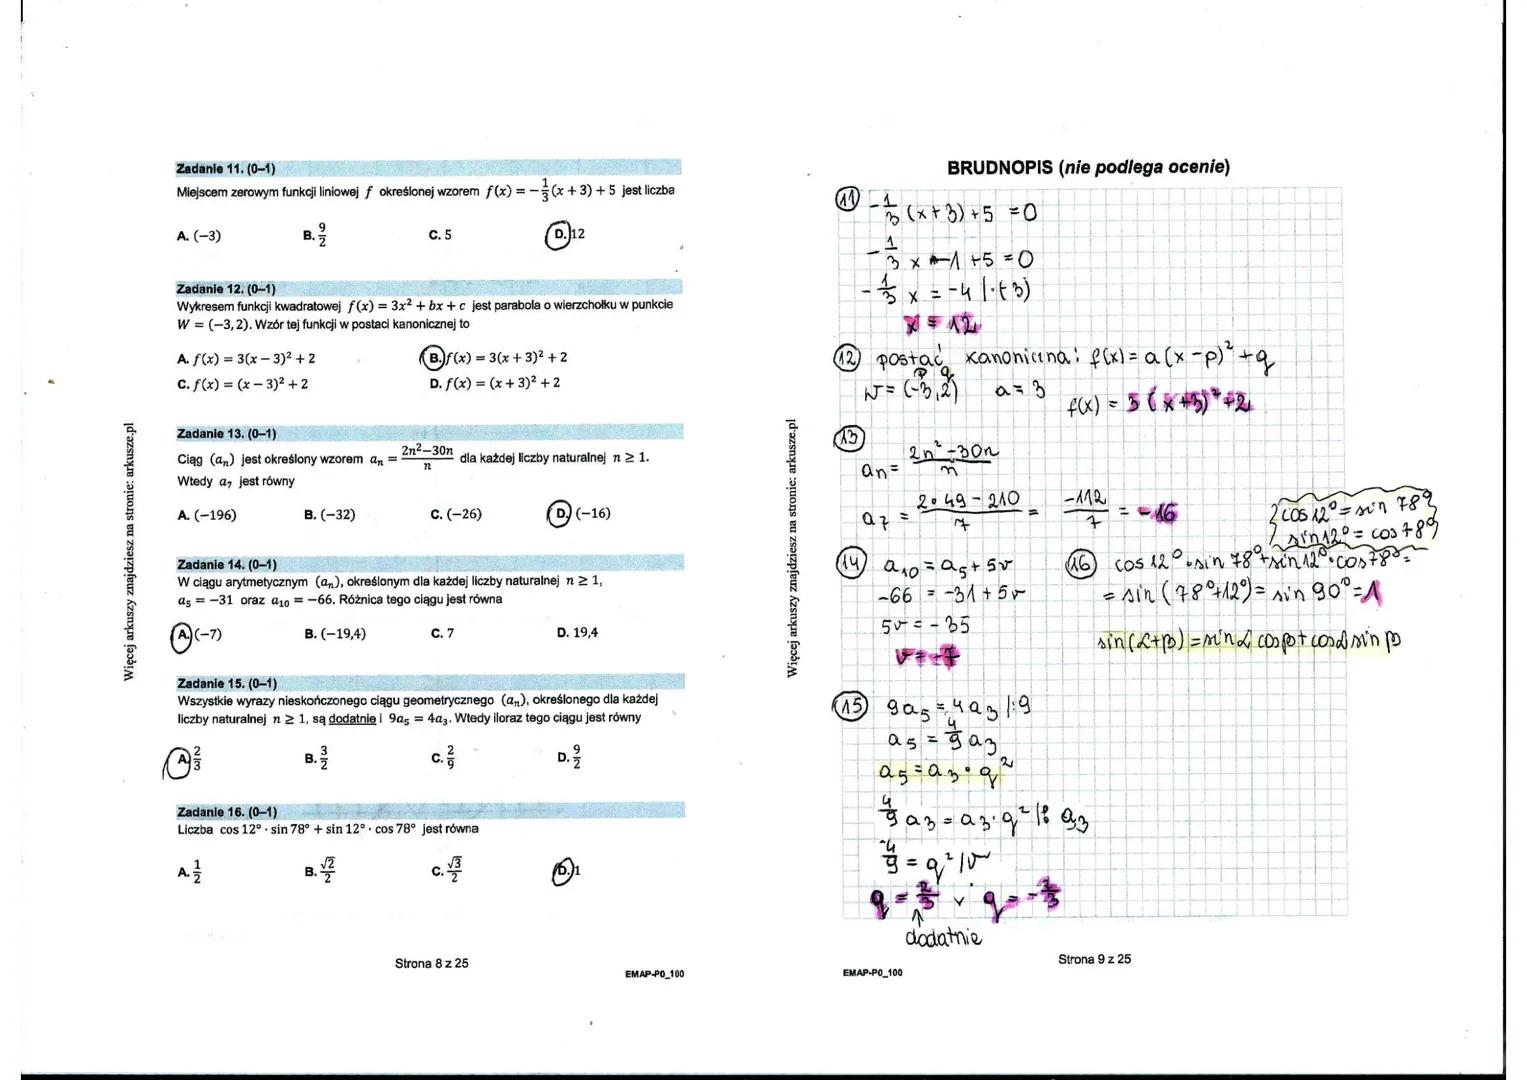 Więcej arkuszy znajdziesz na stronie: arkusze.pl
Zadanie 11. (0–1)
Miejscem zerowym funkcji liniowej f określonej wzorem f(x) = −1/3(x + 3) + 5 jest liczba
A. (−3) B. 9/2 C. 5 D. 12
Zadanie 12. (0–1)
Wykresem funkcji kwadratowej f(x) = 3x² + bx + c jest parabola o wierzchołku w punkcie
W = (−3, 2). Wzór tej funkcji w postaci kanonicznej to
A. f(x) = 3(x − 3)² + 2 B. f(x) = 3(x + 3)² + 2
C. f(x) = (x − 3)² + 2 D. f(x) = (x + 3)² + 2
Zadanie 13. (0–1)
Ciąg (aₙ) jest określony wzorem aₙ = (2n²−30n)/n dla każdej liczby naturalnej n ≥ 1.
Wtedy a₇ jest równy
A. (−196) B. (−32) C. (−26) D. (−16)
Zadanie 14. (0–1)
W ciągu arytmetycznym (aₙ), określonym dla każdej liczby naturalnej n ≥ 1,
a₅ = −31 oraz a₁₀ = −66. Różnica tego ciągu jest równa
A. (−7) B. (−19,4) C. 7 D. 19,4
Zadanie 15. (0–1)
Wszystkie wyrazy nieskończonego ciągu geometrycznego (aₙ), określonego dla każdej
liczby naturalnej n ≥ 1, są dodatnie i 9a₅ = 4a₃. Wtedy iloraz tego ciągu jest równy
A. 2/3 B. 3/2 C. 2/9 D. 9/2
Zadanie 16. (0–1)
Liczba cos 12° · sin 78° + sin 12° · cos 78° jest równa
A. 1/2 B. √2/2 C. √3/2 D. 1
Strona 8 z 25
EMAP-P0_100
Więcej arkuszy znajdziesz na stronie: arkusze.pl
BRUDNOPIS (nie podlega ocenie)
11 −1/3 (x+3)+5 =0
−1/3 x −1 +5 =0
−1/3 x = −4 |·(−3)
x = 12
12 postać kanoniczna: f(x) = a(x−p)²+q
p q
W = (−3,2) a = 3
f(x) = 3(x+3)²+2
13
an = (2n²−30n)/n
a7 = (2·49−210)/7 = −112/7 = −16
cos12° = sin 78°
sin12° = cos 78°
14 a10 = a5 + 5r
−66 = −31 + 5r
5r = −35
r = −7
16 cos 12° · sin 78° + sin 12° · cos 78° =
= sin (78°+12°) = sin 90° = 1
sin(α+β) = sin α cos β + cos α sin β
15 9a5 = 4a3 |:9
a5 = 4/9 a3
a5 = a3 · q²
4/9 a3 = a3 · q² |: a3
4/9 = q² |√
q = 2/3 v q = −2/3
↑
dodatnie
Strona 9 z 25
EMAP-P0_100